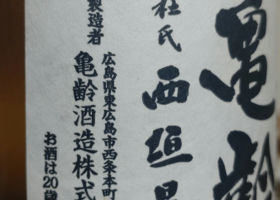 亀齢
杜氏 西垣昌
製造者
広島県東広島市西条本町
亀齢酒造株式
お酒は20歳